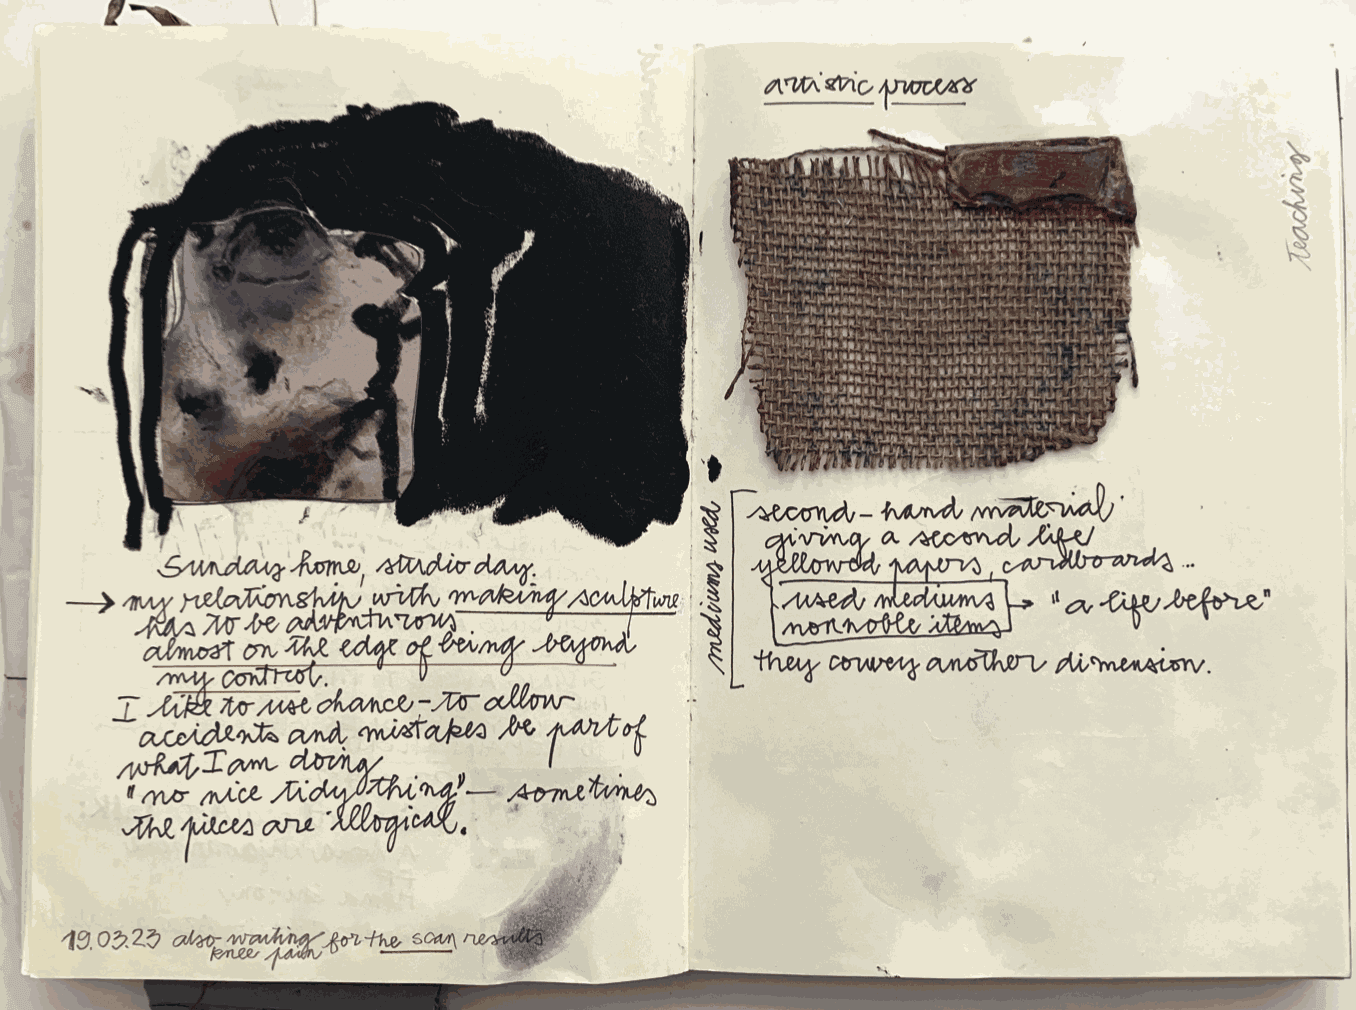 Sunday home, studio day.
→ my relationship with making sculpture
has to be adventurous
almost on the edge of being beyond
my control.
I like to use chance - to allow
accidents and mistakes be part of
what I am doing
"no nice tidy thing" — sometimes
the pieces are illogical.
19.03.23 also waiting for the scan results
knee pain
artistic process
teaching
mediums used
second-hand material
giving a second life
yellowed papers, cardboards...
used mediums → "a life before"
nonnoble items
they convey another dimension.